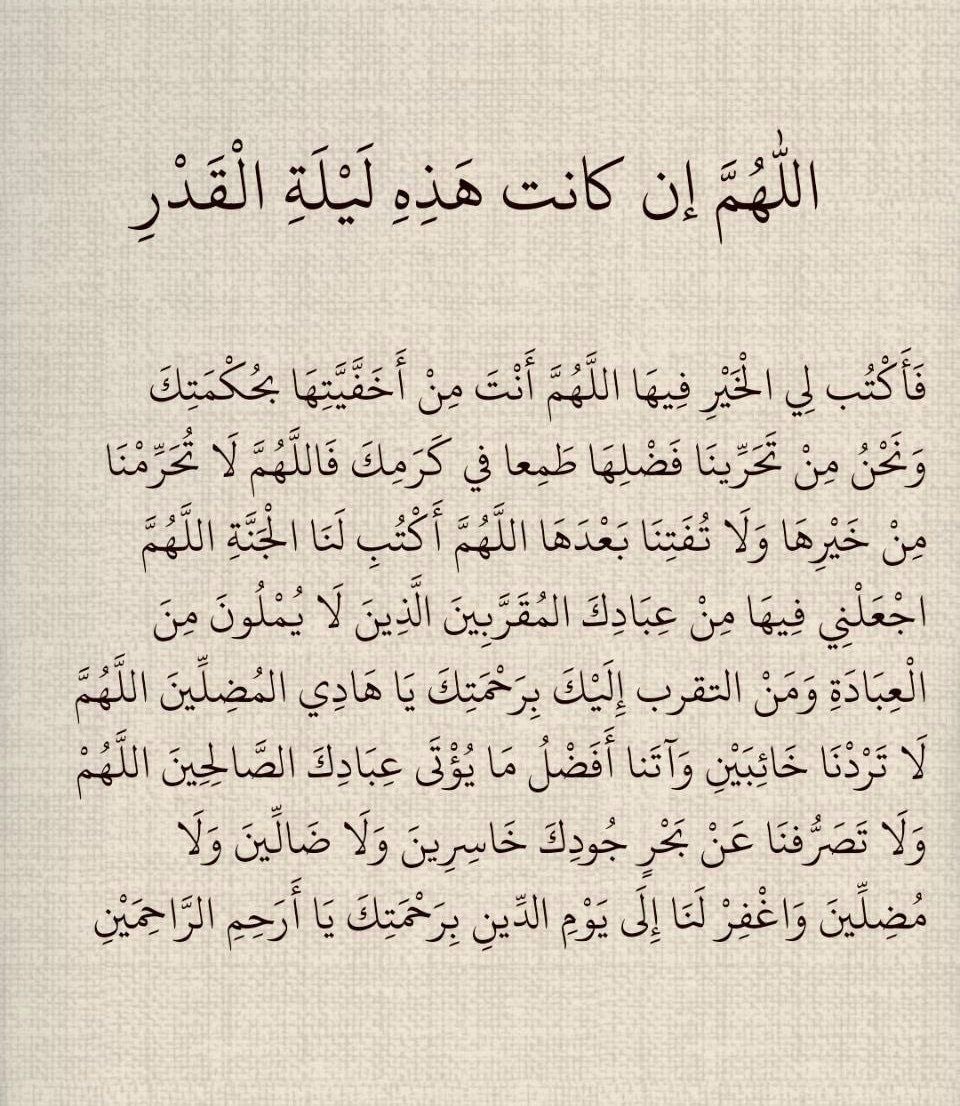 اللَّهُمَّ إن كانت هَذِهِ لَيْلَةِ الْقَدْرِ
فَأَكْتُب لِي الْخَيْرِ فِيهَا اللَّهُمَّ أَنْتَ مِنْ أَخَفَّيَّتِهَا بِحُكْمَتِكَ
وَنَحْنُ مِنْ تَحَرِّينَا فَضْلِهَا طَمِعا في كَرَمِكَ فَاللَّهُمَّ لَا تُحَرِّمْنَا
مِنْ خَيْرِهَا وَلَا تُفَتِنَنَا بَعْدَهَا اللَّهُمَّ أَكْتُبِ لَنَا الْجَنَّةِ اللَّهُمَّ
اجْعَلْنِي فِيهَا مِنْ عِبَادِكَ المُقَرَّبِينَ الَّذِينَ لَا يُمْلُونَ مِنَ
الْعِبَادَةِ وَمَنْ التقرب إِلَيْكَ بِرَحْمَتِكَ يَا هَادِي المُضِلِّينَ اللَّهُمَّ
لَا تَرْدْنَا خَائِبَيْنِ وَآتَنا أَفَضْلُ مَا يُؤْتَى عِبَادِكَ الصَّالِحِينَ اللَّهُمْ
وَلَا تَصَرُّفنَا عَنْ بَحْرٍ جُودِكَ خَاسِرِينَ وَلَا ضَالِّينَ وَلَا
مُضِلِّينَ وَاغْفِرْ لَنَا إِلَى يَوْمِ الدِّينِ بِرَحْمَتِكَ يَا أَرَحِمِ الرَّاحِمَيْنِ